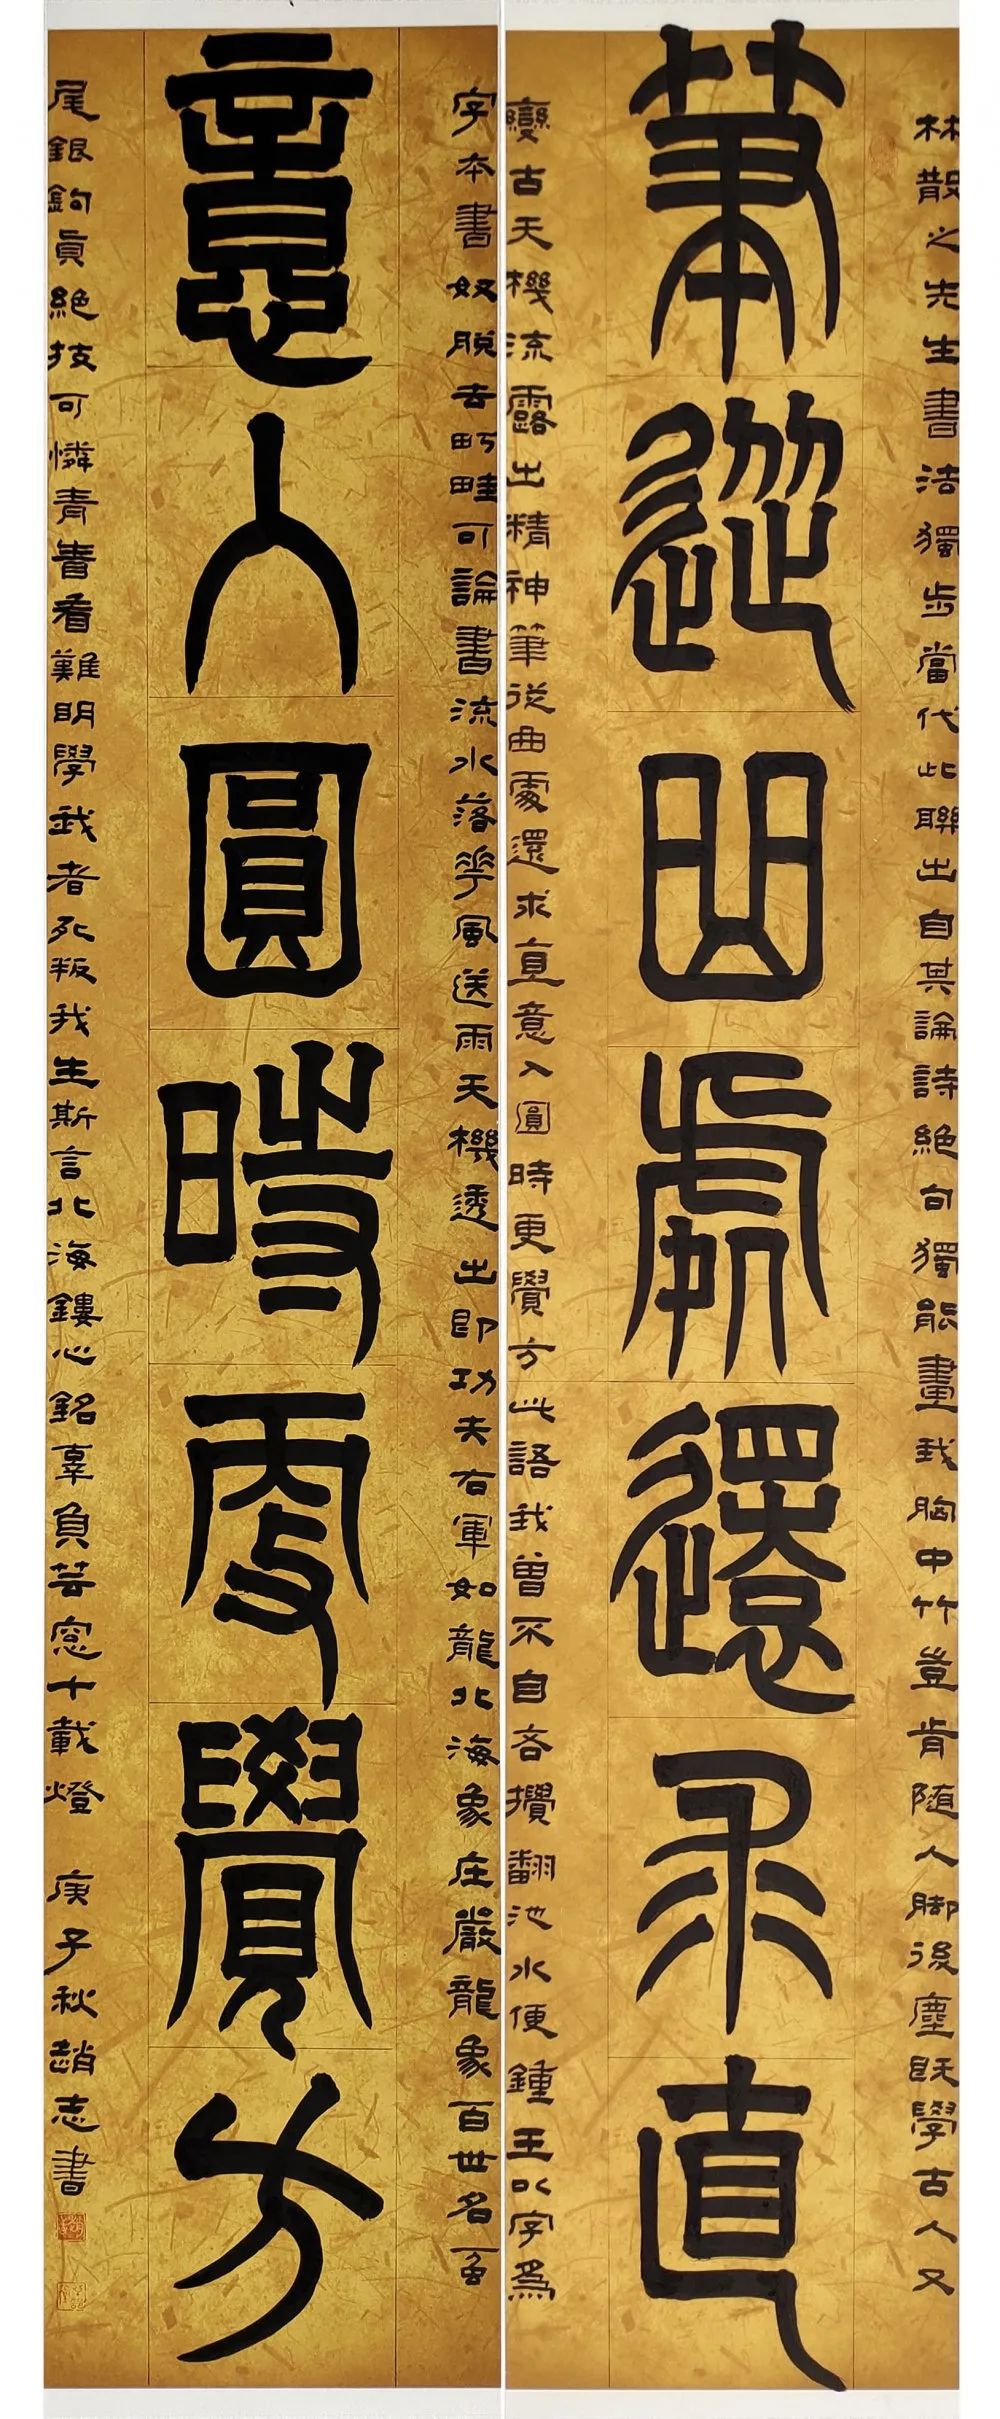 林散之先生書法獨步當代此聯出自其論詩絕句獨能畫我胸中竹豈肯隨人脚後塵既學古人又
筆從曲處還求直
變古天機流露出精神筆從曲處還求直意入圓時更覺方此語我曾不自吝攪翻池水便鍾王以字爲
字本書奴脫去町畦可論書流水落花風送雨天機透出即功夫右軍如龍北海象庄嚴龍象百世名虿
意入圓時更覺方
尾銀鉤眞絕技可憐青眚看難明學我者死叛我生斯言北海鏤心銘辜負芸窗十載燈 庚子秋趙志書